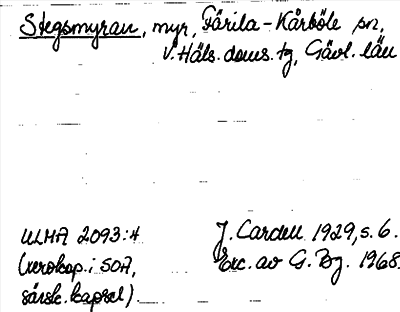 Stegsmyran, myr, Färila-Kårböle sn,
V. Häls. doms. tg, Gävl. län
ULMA 2093:4
J. Cardell 1929, s. 6.
(xerokop. i SOA,
Exc. av G. Bg. 1968.
särsk. kapsel).